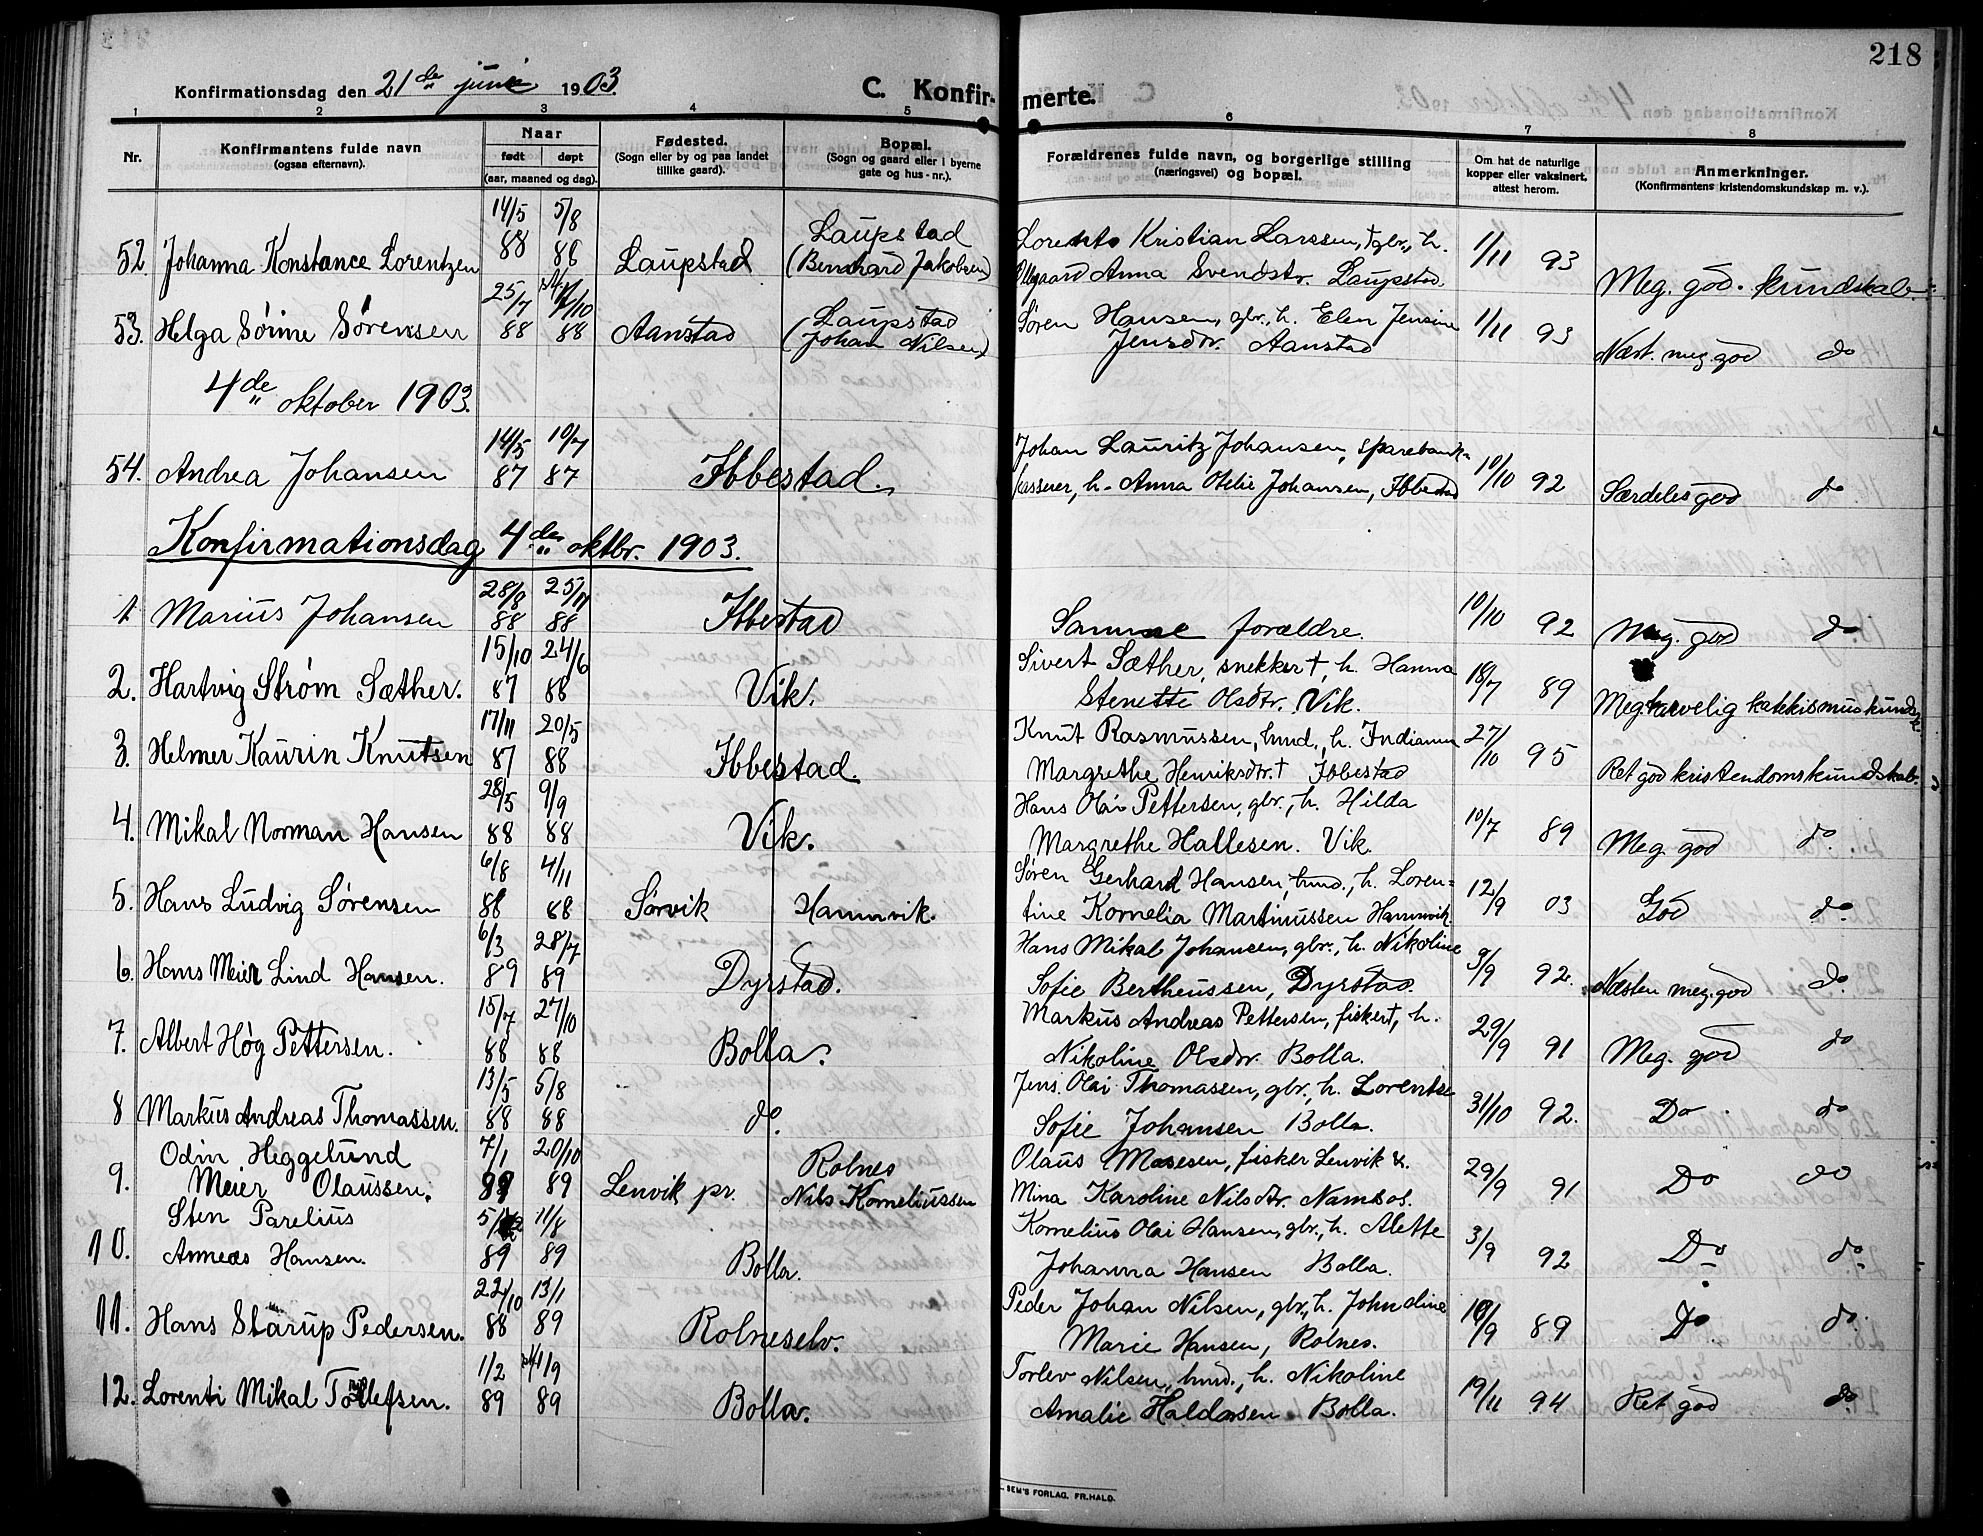 218
Konfirmationsdag den 21de juni 1903.
C. Konfirmerte.
1 2 3 4 5 6 7 8
Nr. Konfirmantens fulde navn (ogsaa efternavn). Naar født døpt (aar, maaned og dag). Fødested. (Sogn eller by og paa landet tillike gaard). Bopæl. (Sogn og gaard eller i byerne gate og hus-nr.). Forældrenes fulde navn, og borgerlige stilling (næringsvei) og bopæl. Om hat de naturlige kopper eller vaksinert, attest herom. Anmerkninger. (Konfirmantens kristendomskundskap m. v.).
52 Johanna Konstance Lorentzen 14/5 88 5/8 88 Laupstad Laupstad (Bernhard Jakobsen) Lorents Kristian Larssen, † gbr., h. Ollegaard Anna Svendstr. Laupstad. 1/11 93 Meg. god. kundskab
53. Helga Sørine Sørensen 25/7 88 7/10 88 Aanstad Laupstad (Johan Nilsen) Søren Hansen, gbr., h. Elen Jensine Jensdtr. Aanstad 1/11 93 Næst. meg. god do
4de oktober 1903.
54. Andrea Johansen 14/5 87 10/7 87 Ibbestad. Johan Lauritz Johansen, sparebank- kasserer, h. Anna Otelie Johansen, Ibbestad 10/10 92 Særdeles god do
Konfirmationsdag 4de oktbr. 1903.
1 Marius Johansen 28/8 88 25/11 88 Ibbestad Samme forældre. 10/10 92 Meg. god do
2. Hartvig Strøm Sæther. 15/10 87 24/6 88 Vik. Sivert Sæther, snekker †, h. Hanna Stenette Olsdtr. Vik. 18/7 89 Meg tarvelig katekismuskundsk.
3. Helmer Kaurin Knutsen 17/11 87 20/5 88 Ibbestad. Knut Rasmussen, hmd., h. Indianna Margrethe Henriksdtr. † Ibbestad 27/10 95 Ret god kristendomskundskab.
4. Mikal Norman Hansen 28/5 88 9/9 88 Vik. Hans Olai Pettersen, gbr., h. Hilda Margrethe Hallesen. Vik. 10/7 89 Meg. god do.
5. Hans Ludvig Sørensen 6/8 88 4/11 88 Sørvik Hamnvik. Søren Gerhard Hansen, hmd., h. Loren- tine Kornelia Martinussen Hamnvik. 12/9 03 God do.
6. Hans Meier Lind Hansen. 6/3 89 28/7 89 Dyrstad. Hans Mikal Johansen, gbr., h. Nikoline Sofie Bertheussen, Dyrstad 9/9 92. Næsten meg. god do.
7. Albert Høg Pettersen. 15/7 88 27/10 88 Bolla. Markus Andreas Pettersen, fisker †, h. Nikoline Olsdtr. Bolla. 29/9 91 Meg. god do
8 Markus Andreas Thomassen. 13/5 88 5/8 88 do. Jens Olai Thomassen, gbr., h. Lorentse Sofie Johansen Bolla. 31/10 92. Do do
9. Odin Heggelund Meier Olaussen. 7/1 89 20/10 89 Lenvik pr. Rolnes Nils Korneliussen Olaus Mosesen, fisker Lenvik &. Mina Karoline Nilsdtr. Namsos. 29/9 91 Do do
10. Sten Parelius Anneas Hansen. 89 11/8 89 Bolla. Kornelius Olai Hansen, gbr., h. Alette Johanna Hansen Bolla. 3/9 92 Do do
11. Hans Starup Pedersen. 22/10 88 13/1 89 Rolneselv. Peder Johan Nilsen, gbr., h. Johndine Marie Hansen, Rolnes. 10/9 89 Do do.
12. Lorents Mikal Tollefsen. 1/2 89 1/9 89 Bolla. Torlev Nilsen, hmd., h. Nikoline Amalie Haldorsen Bolla. 19/11 94 Ret god do
SEM'S FORLAG. FR.HALD.